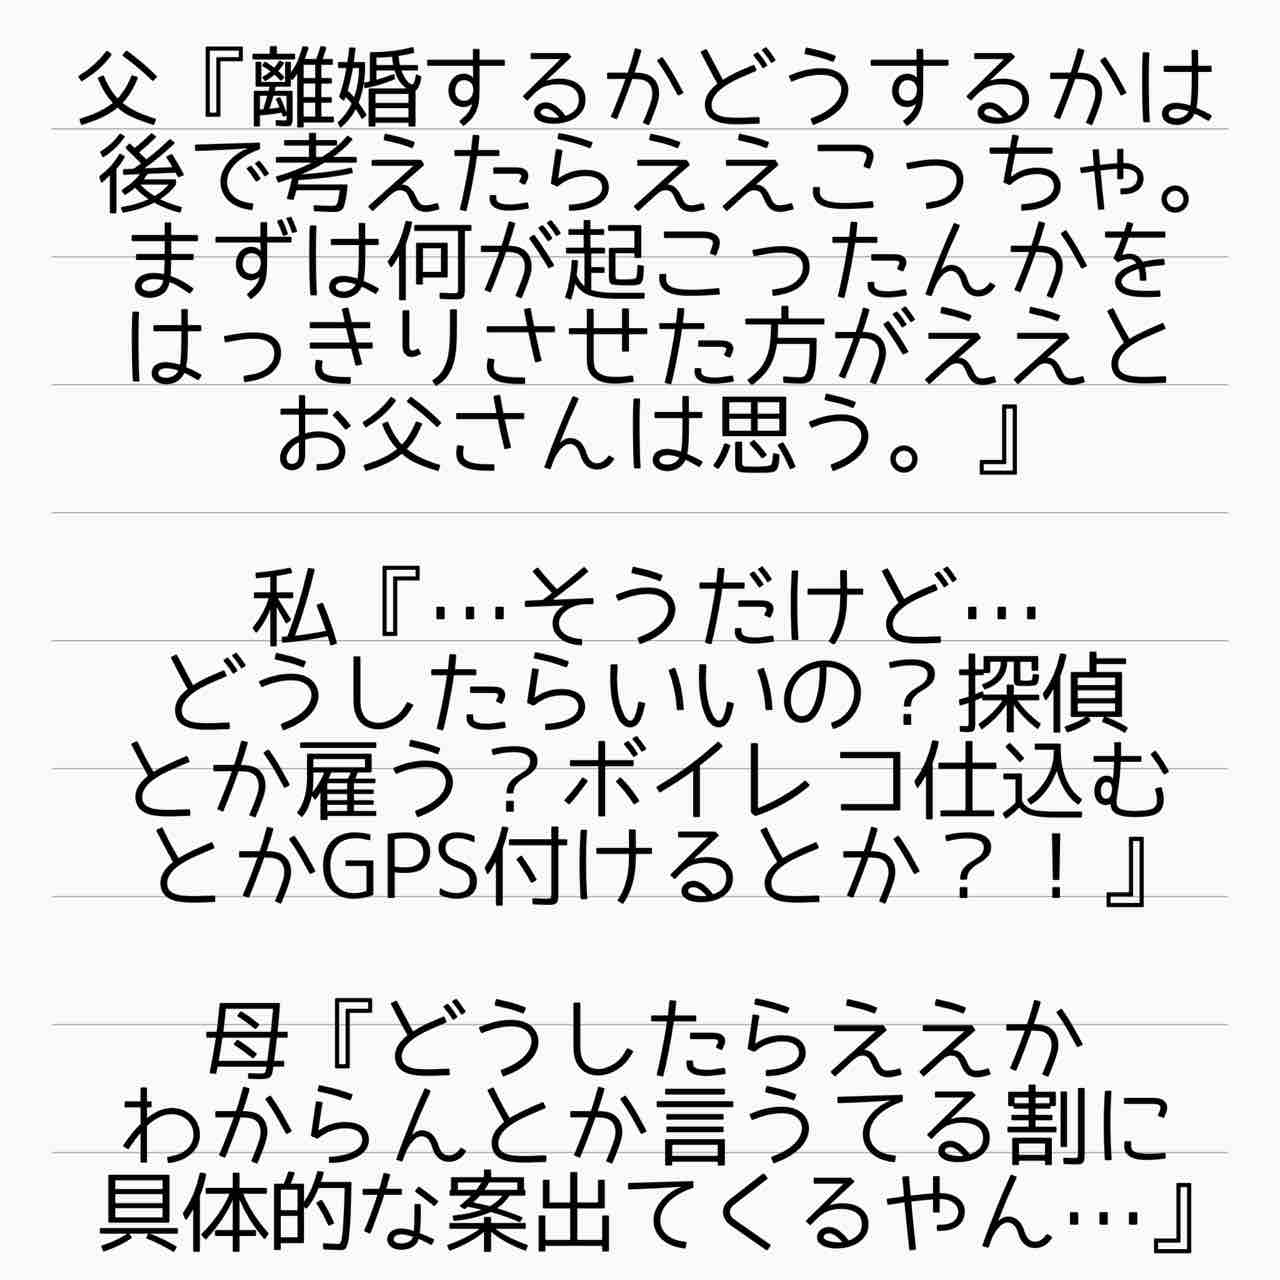 父『離婚するかどうするかは
後で考えたらええこっちゃ。
まずは何が起こったんかを
はっきりさせた方がええと
お父さんは思う。』
私『…そうだけど…
どうしたらいいの？探偵
とか雇う？ボイレコ仕込む
とかGPS付けるとか？！』
母『どうしたらええか
わからんとか言うてる割に
具体的な案出てくるやん…』